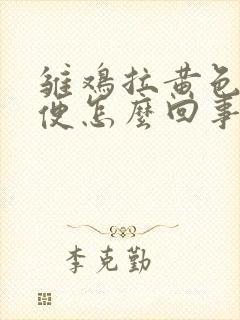 雏鸡拉黄色
便怎麽回事
李克勤